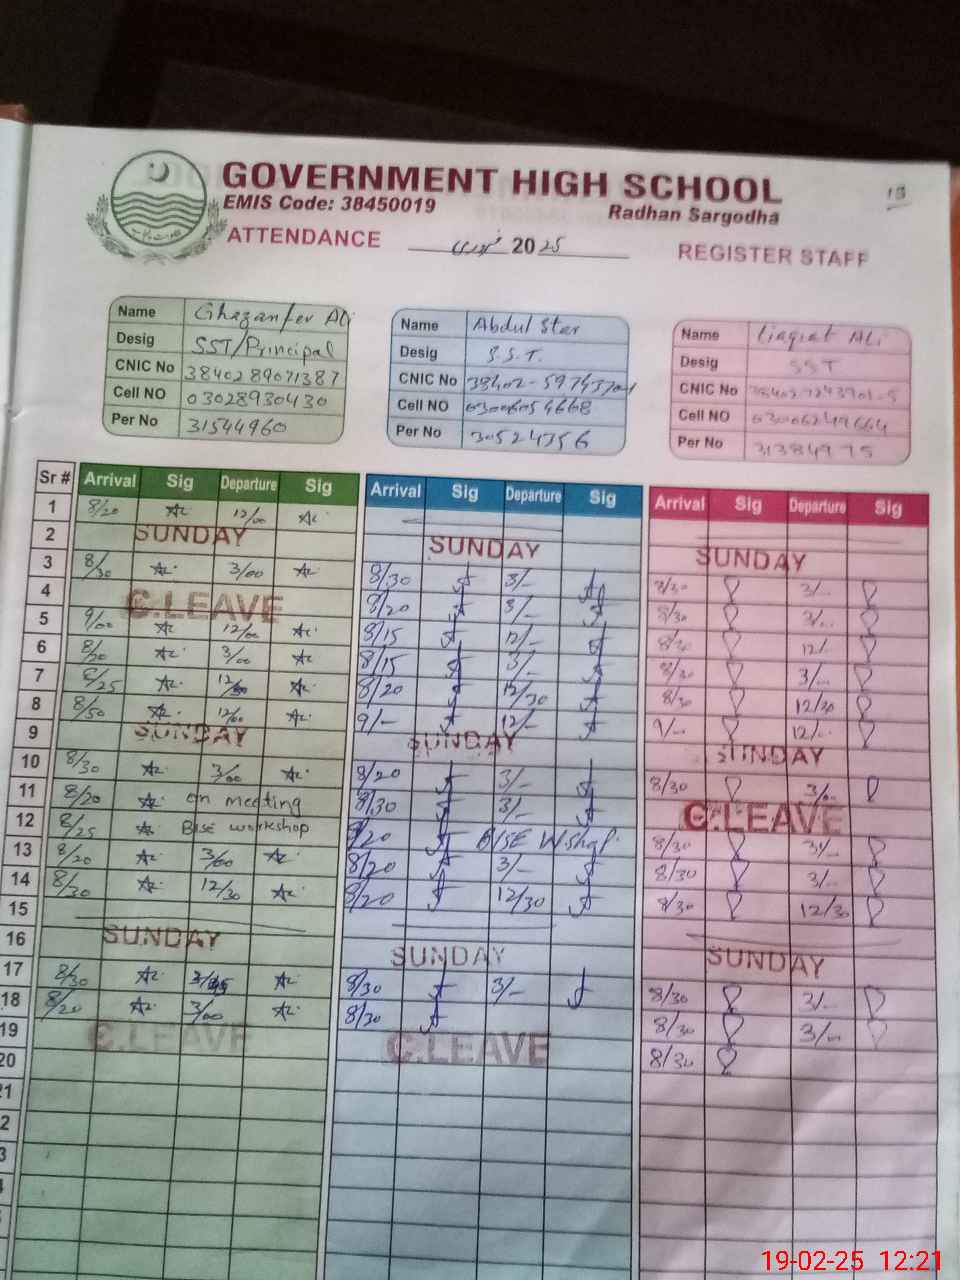 GOVERNMENT HIGH SCHOOL
EMIS Code: 38450019
Radhan Sargodha
ATTENDANCE 2025 REGISTER STAFF
Name Ghazanfer Ali
Desig SST/Principal
CNIC No 3840289071387
Cell NO 03028930430
Per No 31544960
Name Abdul Star
Desig S.S.T.
CNIC No
Cell NO 03006054668
Per No 30524356
Name Liaqiat Ali
Desig SST
CNIC No
Cell NO 03006249664
Per No 31384975
Sr # Arrival Sig Departure Sig Arrival Sig Departure Sig Arrival Sig Departure Sig
1 8/20 12/00
2 SUNDAY SUNDAY SUNDAY
3 8/30 3/00 8/30 3/- 8/30 3/-
4 C.LEAVE 8/20 3/- 8/30 3/-
5 9/00 12/00 8/15 12/- 8/30 12/-
6 8/20 3/00 8/15 3/- 8/30 3/-
7 8/25 8/20 12/30 8/30 12/30
8 8/50 12/00 9/- 12/- 9/- 12/-
9 SUNDAY SUNDAY SUNDAY
10 8/30 3/00 8/20 3/- 8/30 3/-
11 8/20 on meeting 8/30 3/- C.LEAVE
12 8/25 BISE workshop 8/20 BISE W.shop. 8/30 3/-
13 8/20 3/00 8/20 3/- 8/30 3/-
14 8/30 12/30 8/20 12/30 8/30 12/30
15
16 SUNDAY SUNDAY SUNDAY
17 8/30 8/30 3/- 8/30 3/-
18 8/20 3/00 8/30 8/30 3/-
19 C.LEAVE C.LEAVE 8/30
20
21
19-02-25 12:21